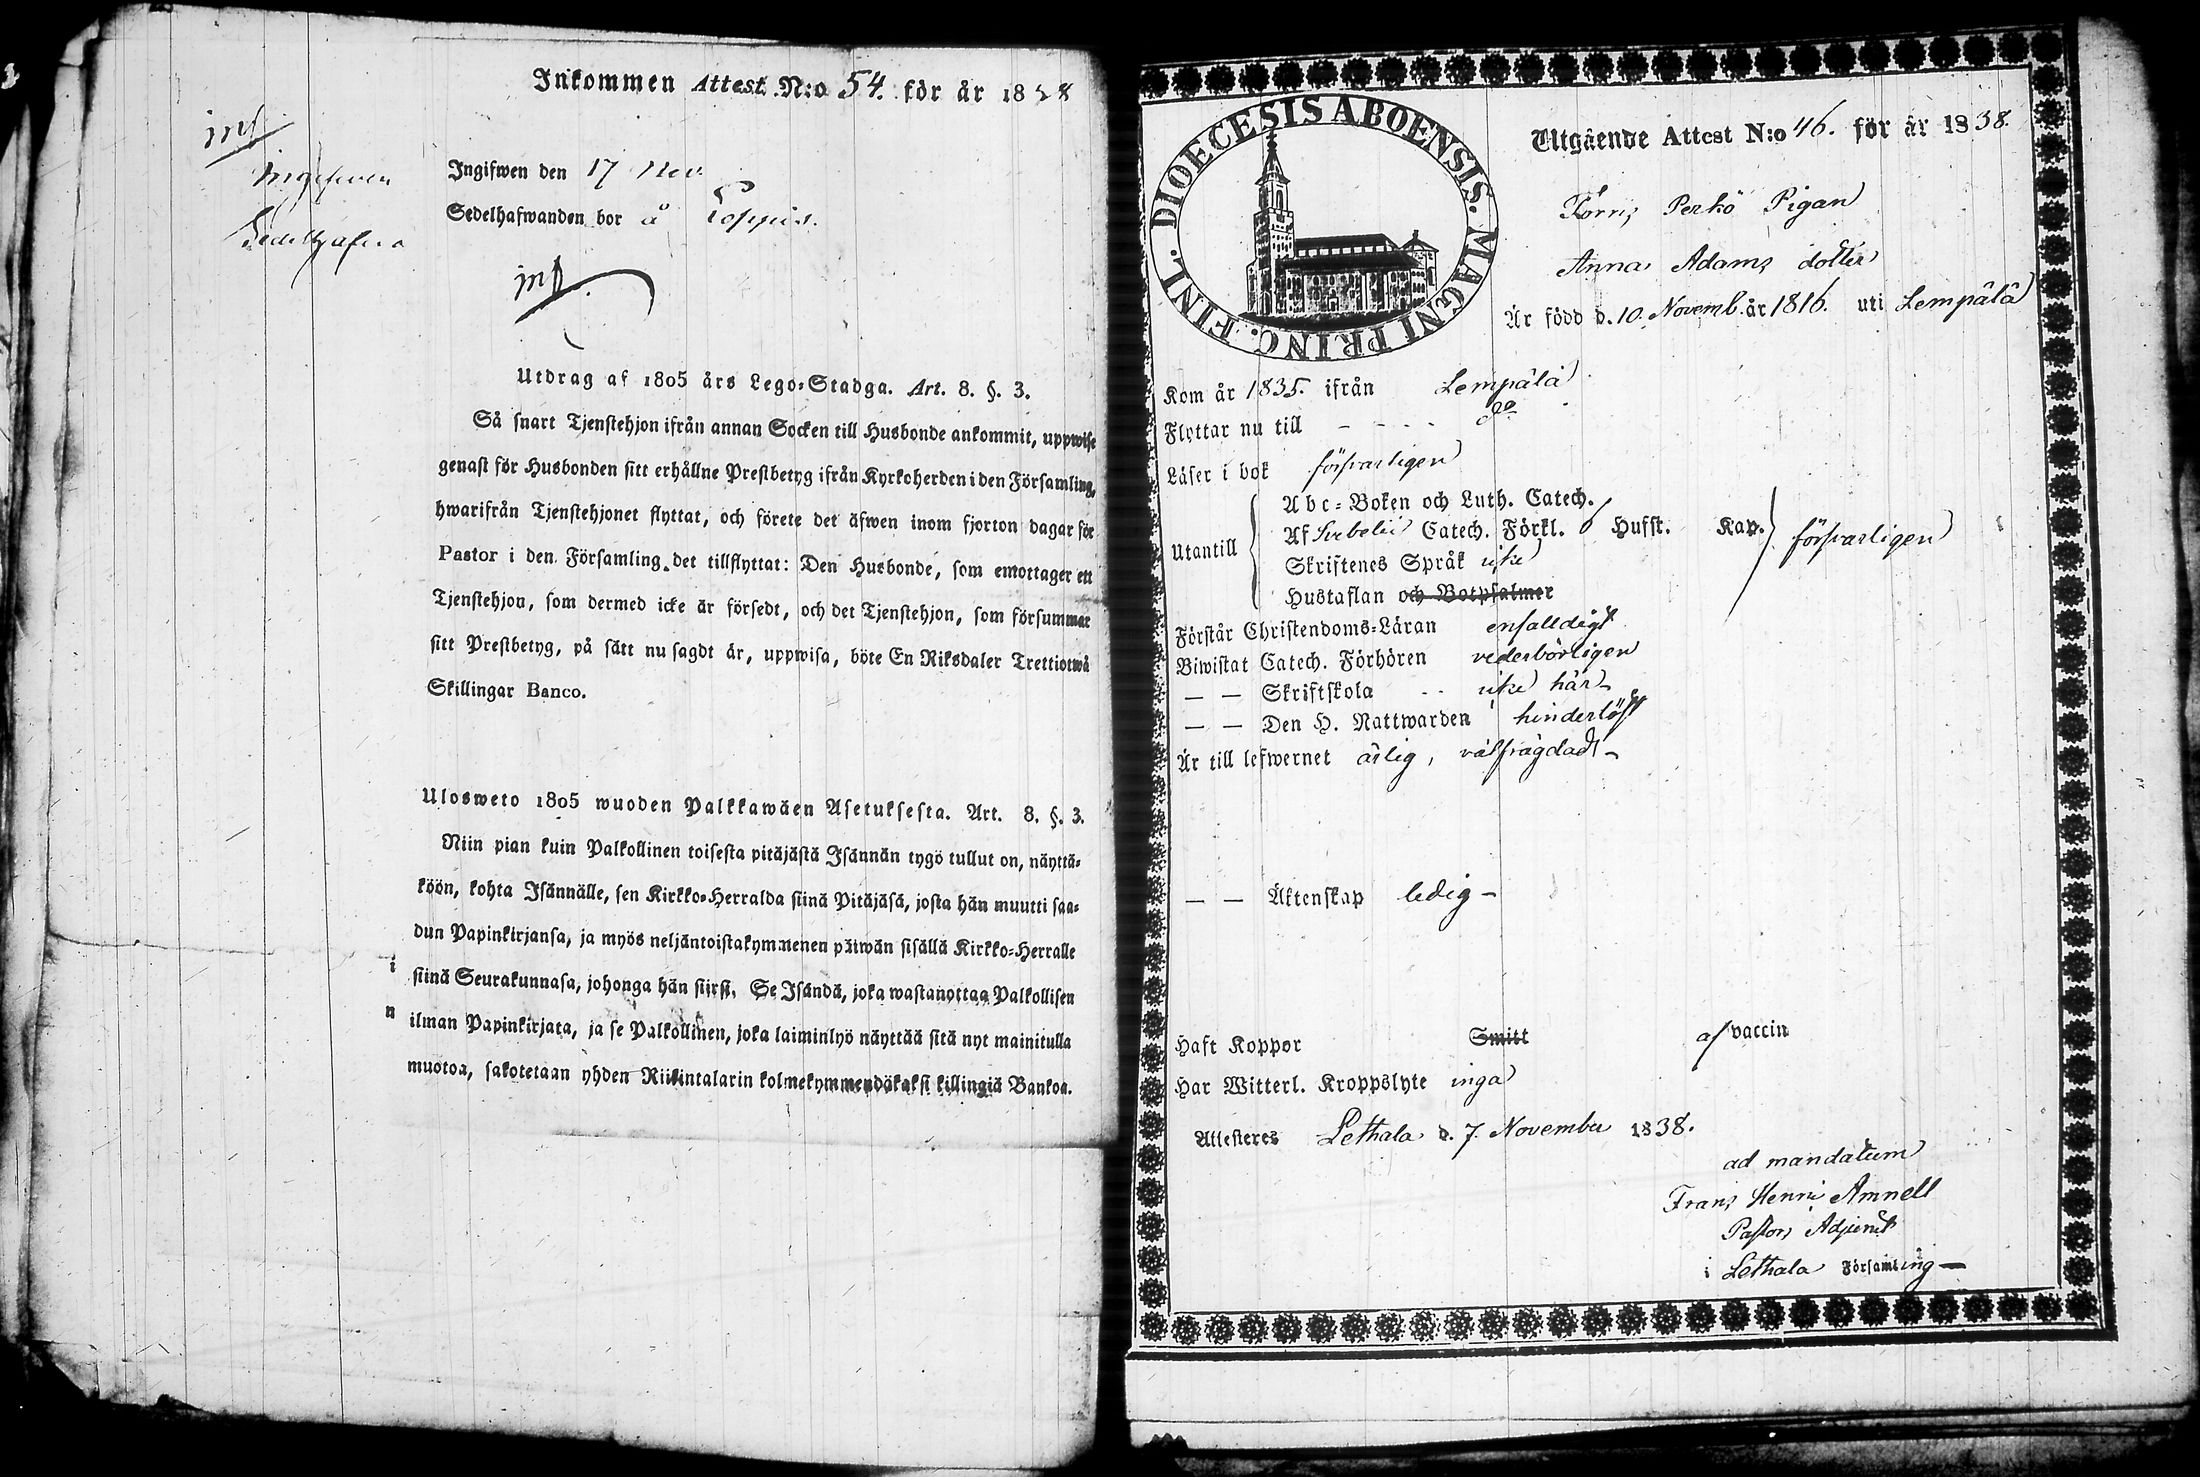 Inkommen Attest N:o 54. för år 1838
inf.
Ingifwen
Sedelhafva
Ingifwen den 17 Nov.
Sedelhafwanden bor å Loppis.
inf.
Utdrag af 1805 års Lego-Stadga. Art. 8. §. 3.
Så snart Tjenstehjon ifrån annan Socken till Husbonde ankommit, uppwise
genast för Husbonden sitt erhållne Prestbetyg ifrån Kyrkoherden i den Församling,
hwarifrån Tjenstehjonet flyttat, och förete det äfwen inom fjorton dagar för
Pastor i den Församling det tillflyttat: Den Husbonde, som emottager ett
Tjenstehjon, som dermed icke är försedt, och det Tjenstehjon, som försummar
sitt Prestbetyg, på sätt nu sagdt är, uppwisa, böte En Riksdaler Trettiotwå
Skillingar Banco.
Ulosweto 1805 wuoden Palkkawäen Asetuksesta. Art. 8. §. 3.
Niin pian kuin Palkollinen toisesta pitäjästä Isännän tygö tullut on, näyttä-
köön, kohta Isännälle, sen Kirkko-Herralda siinä Pitäjäsä, josta hän muutti saa-
dun Papinkirjansa, ja myös neljäntoistakymmenen päiwän sisällä Kirkko-Herralle
i siinä Seurakunnasa, johonga hän siirsi. Se Isändä, joka wastanottaa Palkollisen
n ilman Papinkirjata, ja se Palkollinen, joka laiminlyö näyttää sitä nyt mainitulla
muotoa, sakotetaan yhden Riikintalarin kolmekymmendäkaksi killingiä Bankoa.
DIOECESIS ABOENSIS. MAGNI PRINC. FINL.
Utgående Attest N:o 46. för år 1838.
Torris Perkö Pigan
Anna Adams dotter
Är född d. 10. Novemb. år 1816. uti Lempälä
Kom år 1835. ifrån Lempälä
Flyttar nu till - - - - do
Läser i bok försvarligen
Utantill
Abc-Boken och Luth. Catech.
Af Svebelii Catech. Förkl. Hufst. Kap. försvarligen
Skriftenes Språk icke
Hustaflan och Botpsalmer
Förstår Christendoms-Läran enfalldigt
Biwistat Catech. Förhören vederbörligen
— — Skriftskola - - icke här -
— — Den H. Nattwarden hinderlöst
Är till lefwernet ärlig, välfrägdad -
— — Äktenskap ledig -
Haft Koppor Smitt af vaccin
Har Witterl. Kroppslyte inga
Attesteres Lethala d. 7. November 1838.
ad mandatum
Frans Henric Amnell
Pastors Adjunct
i Lethala Församling —